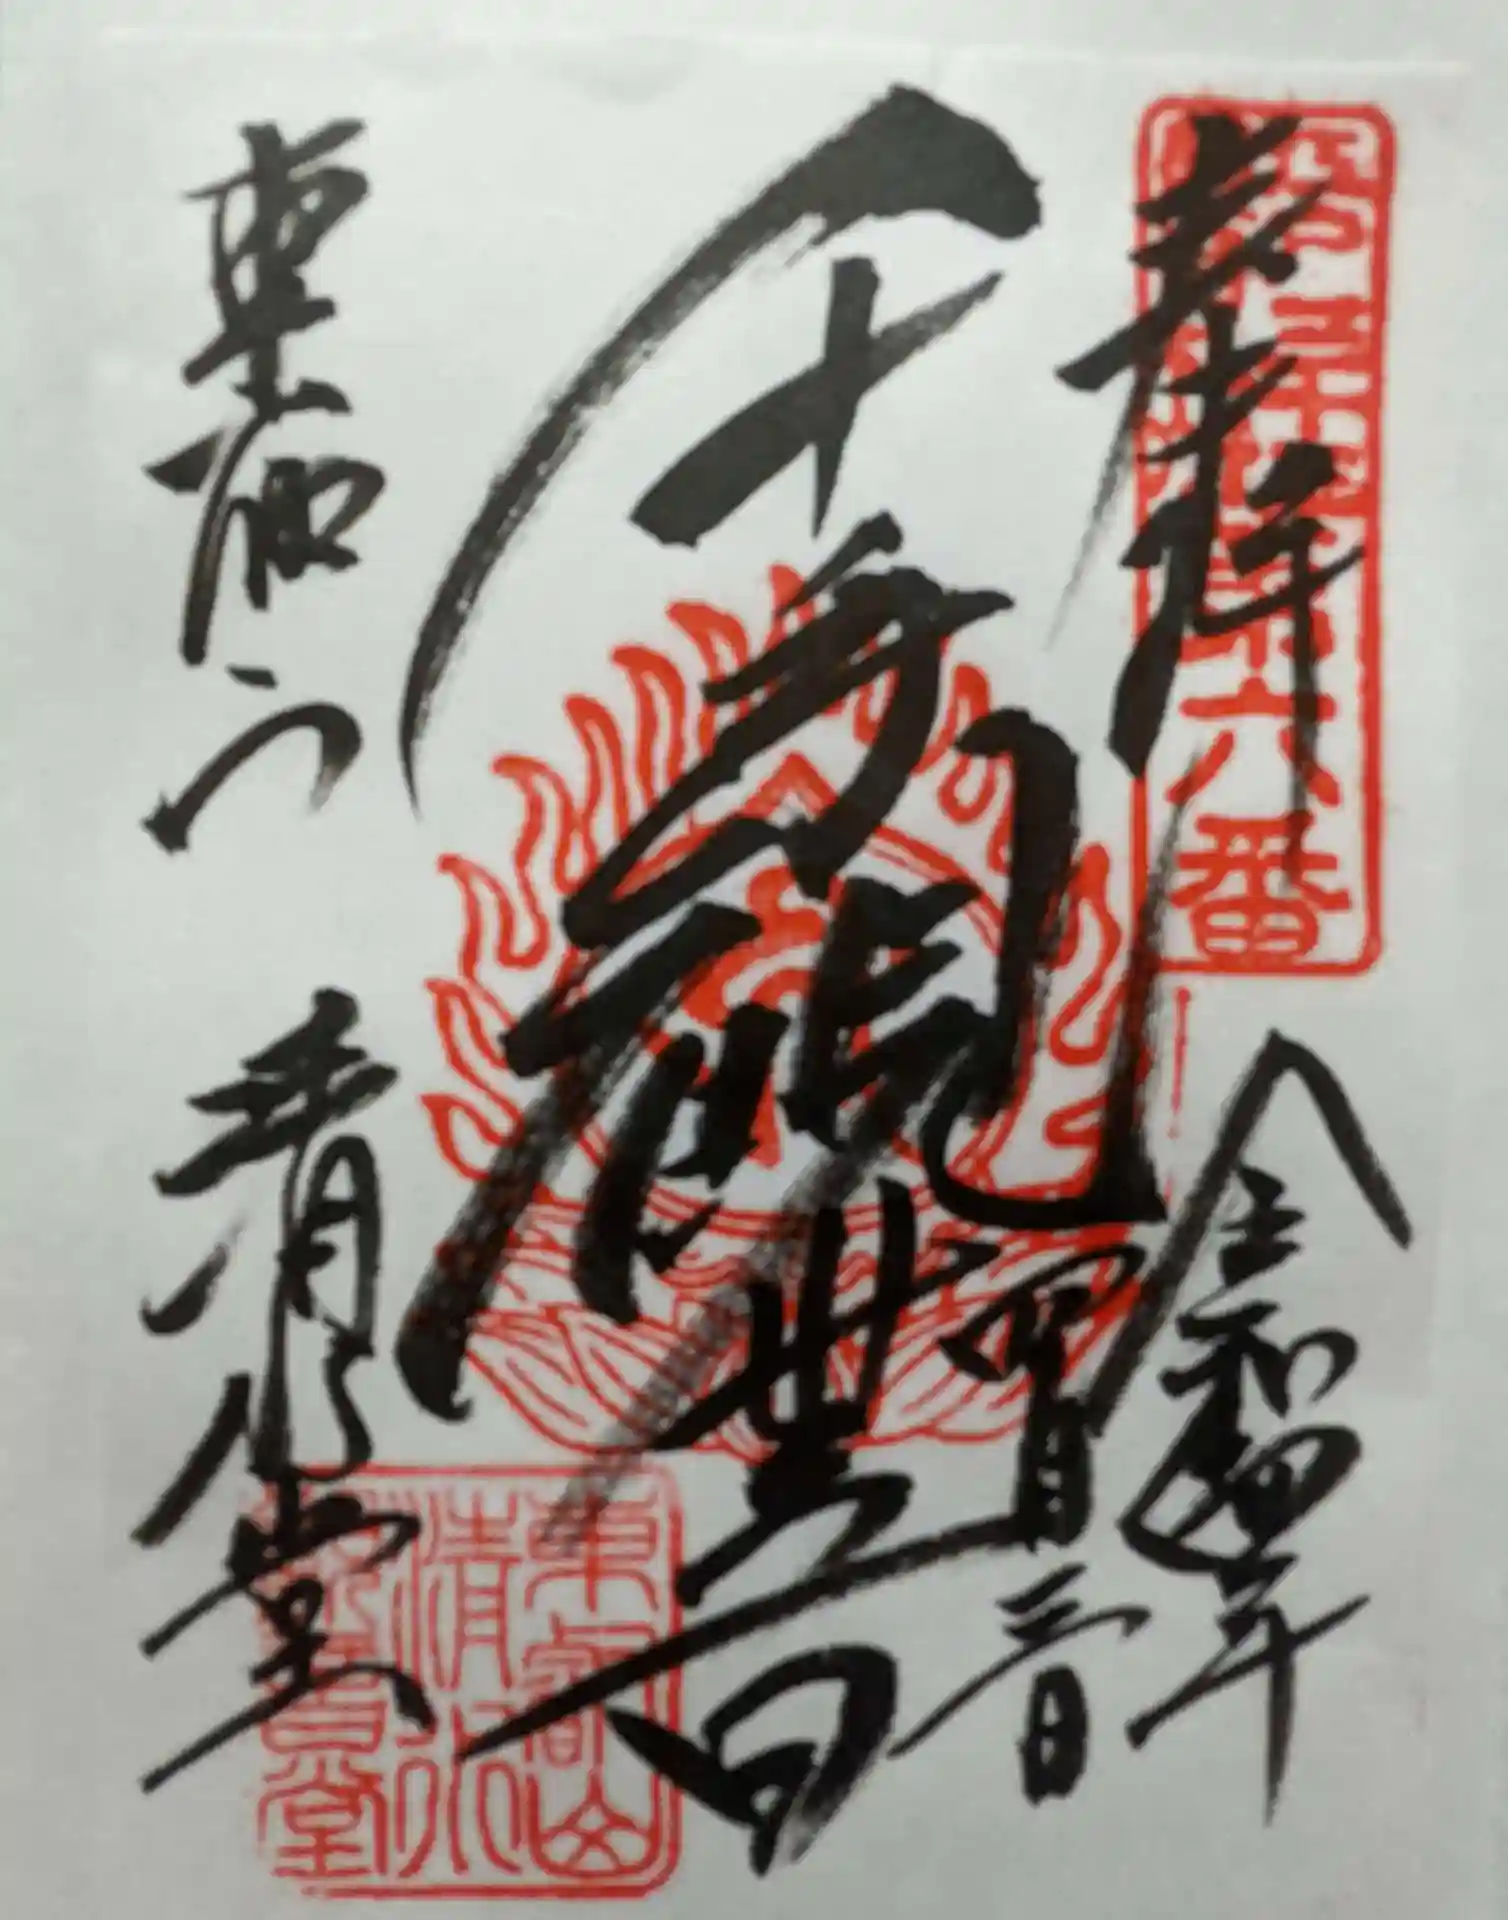 奉拝
令和四年
四月三日
千手観世音
東叡山
清水堂
第六番
東叡山
清水
観音堂